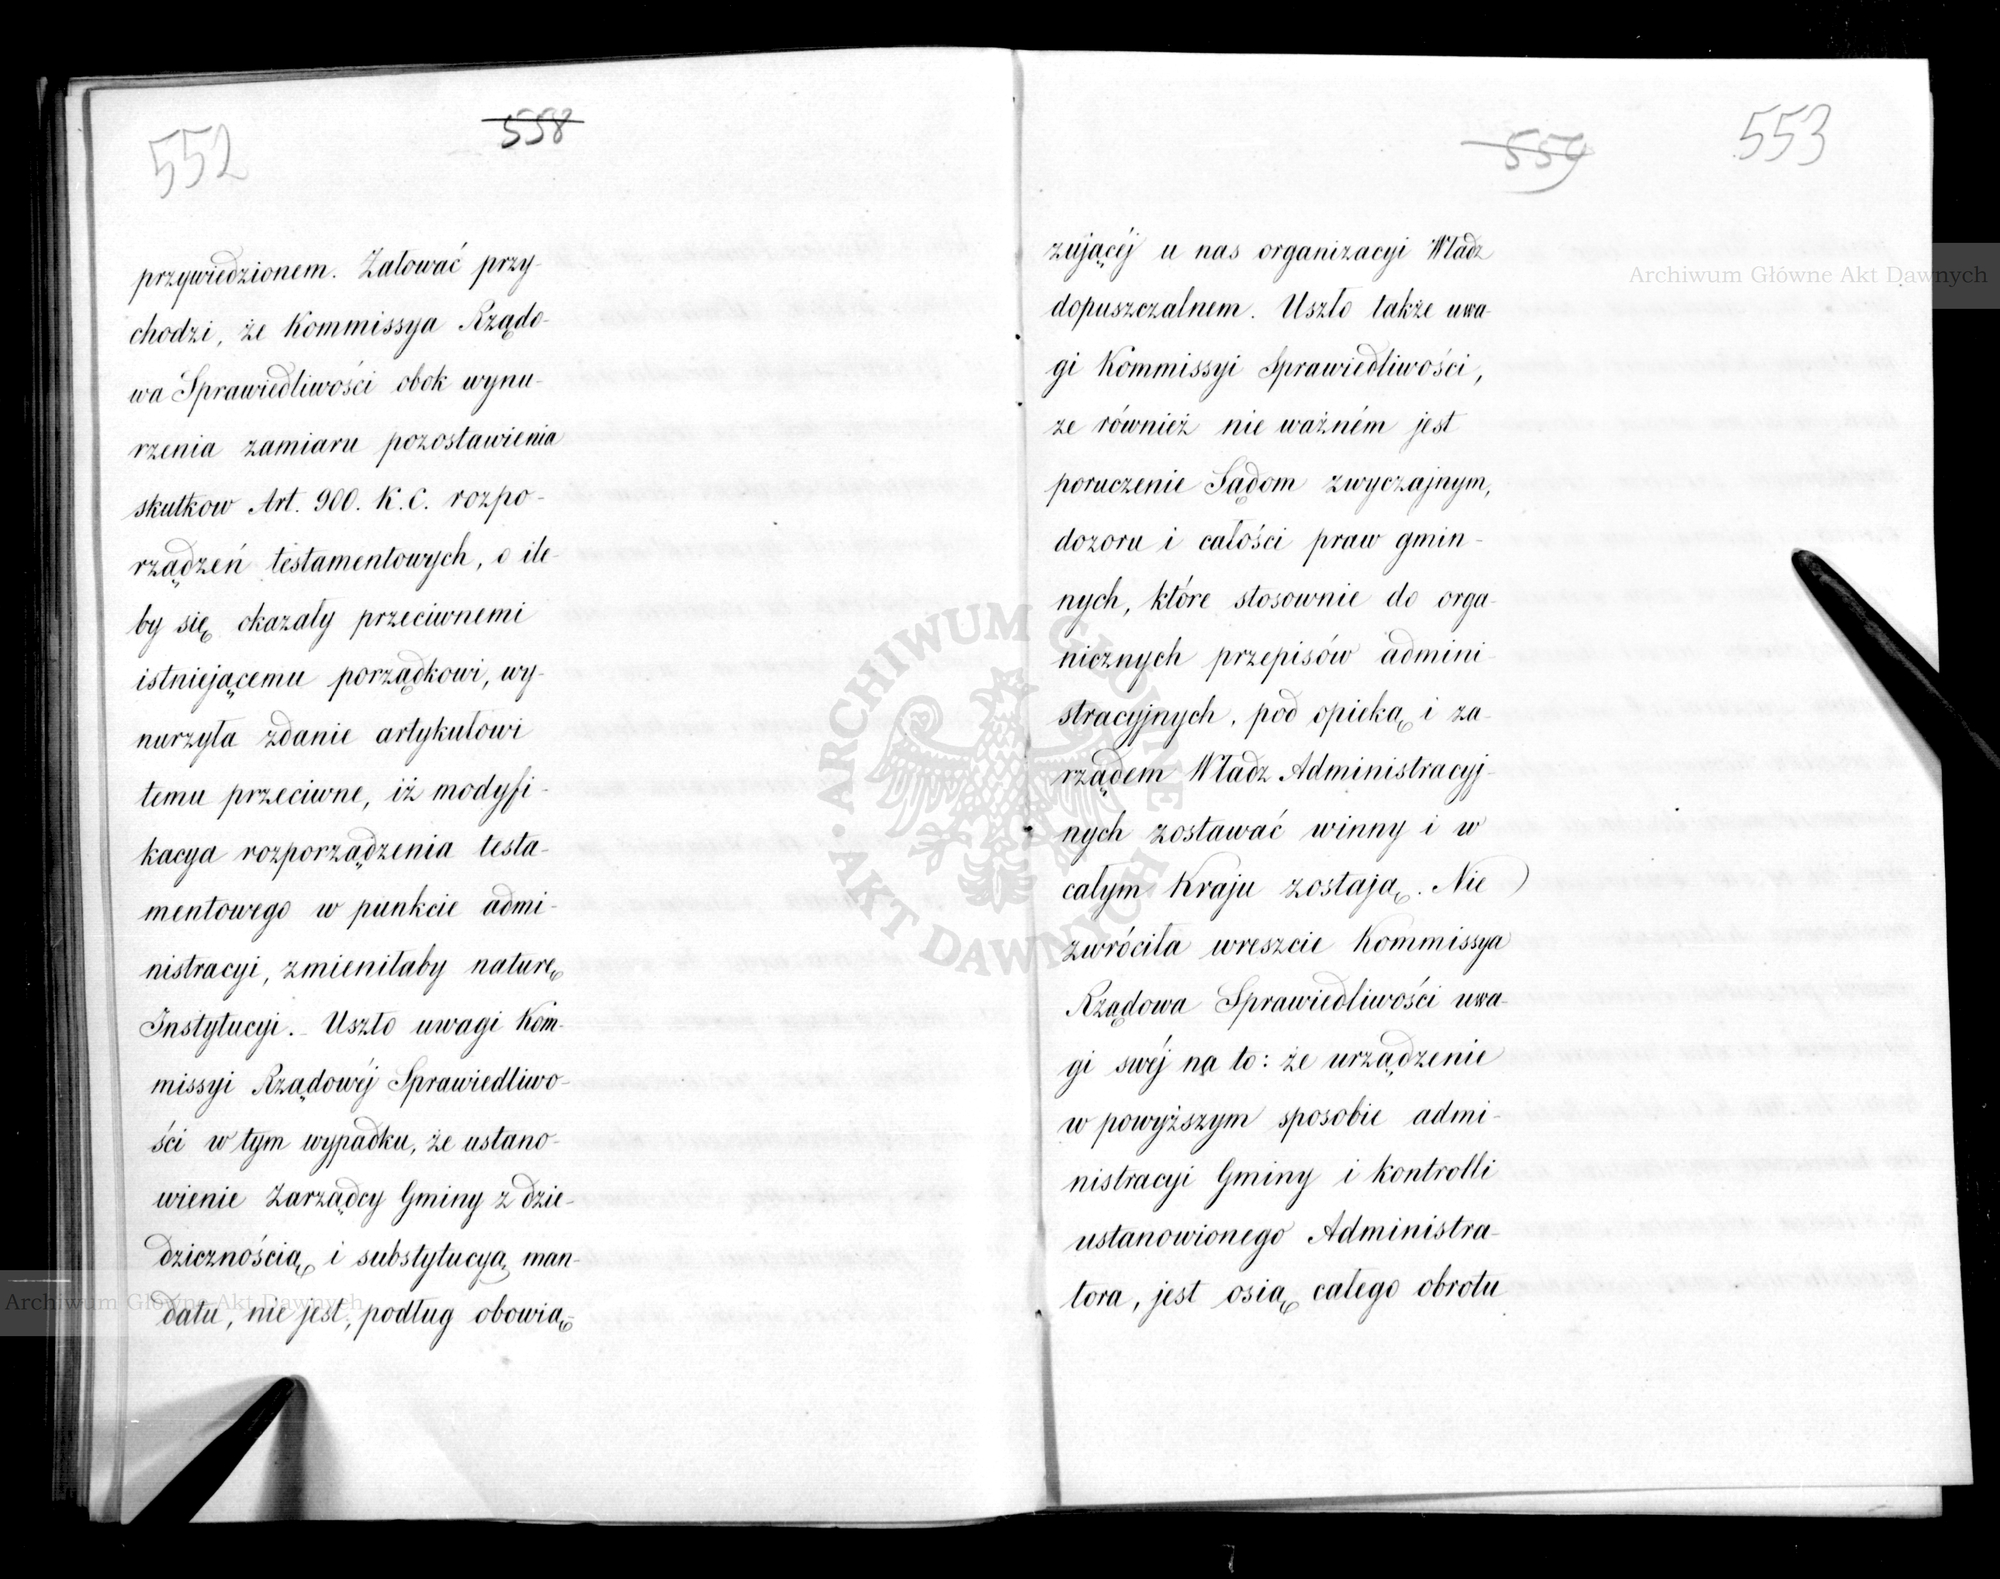 552
558
przywiedzionem. Żałować przy-
chodzi, że Kommissya Rządo-
wa Sprawiedliwości obok wynu-
rzenia zamiaru pozostawienia
skutkow Art. 900. K.C. rozpo-
rządzeń testamentowych, o ile-
by się okazały przeciwnemi
istniejącemu porządkowi, wy-
nurzyła zdanie artykułowi
temu przeciwne, iż modyfi-
kacya rozporządzenia testa-
mentowego w punkcie admi-
nistracyi, zmieniłaby naturę
Instytucyi. Uszło uwagi Kom-
missyi Rządowéj Sprawiedliwo-
ści w tym wypadku, że ustano-
wienie Zarządcy Gminy z dzie-
dzicznością i substytucyą man-
datu, nie jest, podług obowią-
553
559
zującéj u nas organizacyi Władz
dopuszczalnem. Uszło także uwa-
gi Kommissyi Sprawiedliwości,
ze również nie ważném jest
poruczenie Sądom zwyczajnym,
dozoru i całości praw gmin-
nych, które stosownie do orga-
nicznych przepisów admini-
stracyjnych, pod opieką i za-
rządem Władz Administracyj-
nych zostawać winny i w
całym Kraju zostają. Nie
zwróciła wreszcie Kommissya
Rządowa Sprawiedliwości uwa-
gi swéj na to: że urządzenie
w powyższym sposobie admi-
nistracyi Gminy i kontrolli
ustanowionego Administra-
tora, jest osią całego obrotu
Archiwum Główne Akt Dawnych
ARCHIWUM GŁÓWNE AKT DAWNYCH
Archiwum Główne Akt Dawnych